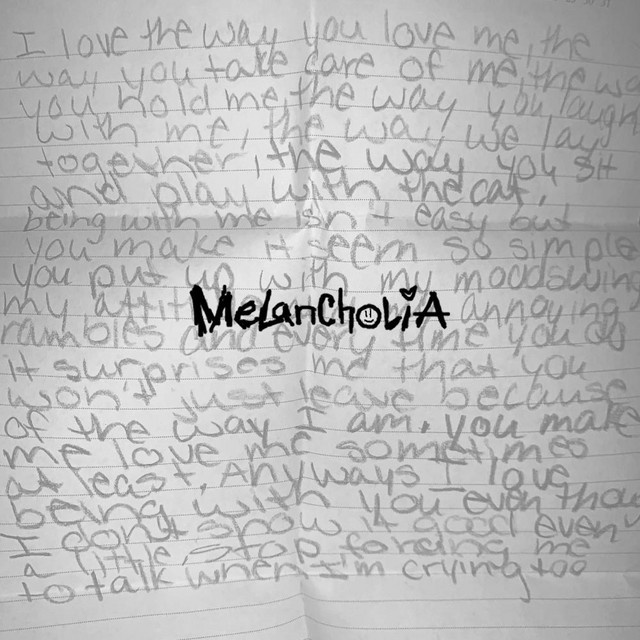 I love the way you love me, the
way you take care of me, the wa
you hold me, the way you laugh
with me, the way we lay
together, the way you sit
and play with the cat,
being with me isn't easy but
you make it seem so simple
you put up with my moodswing
my attit annoying
MelanChoLiA
rambles and every time you do
it surprises me that you
won't just leave because
of the way I am. you make
me love me sometimes
at least. Anyways I love
being with you even thou
I don't show it good even
a little stop forcing me
to talk when I'm crying too